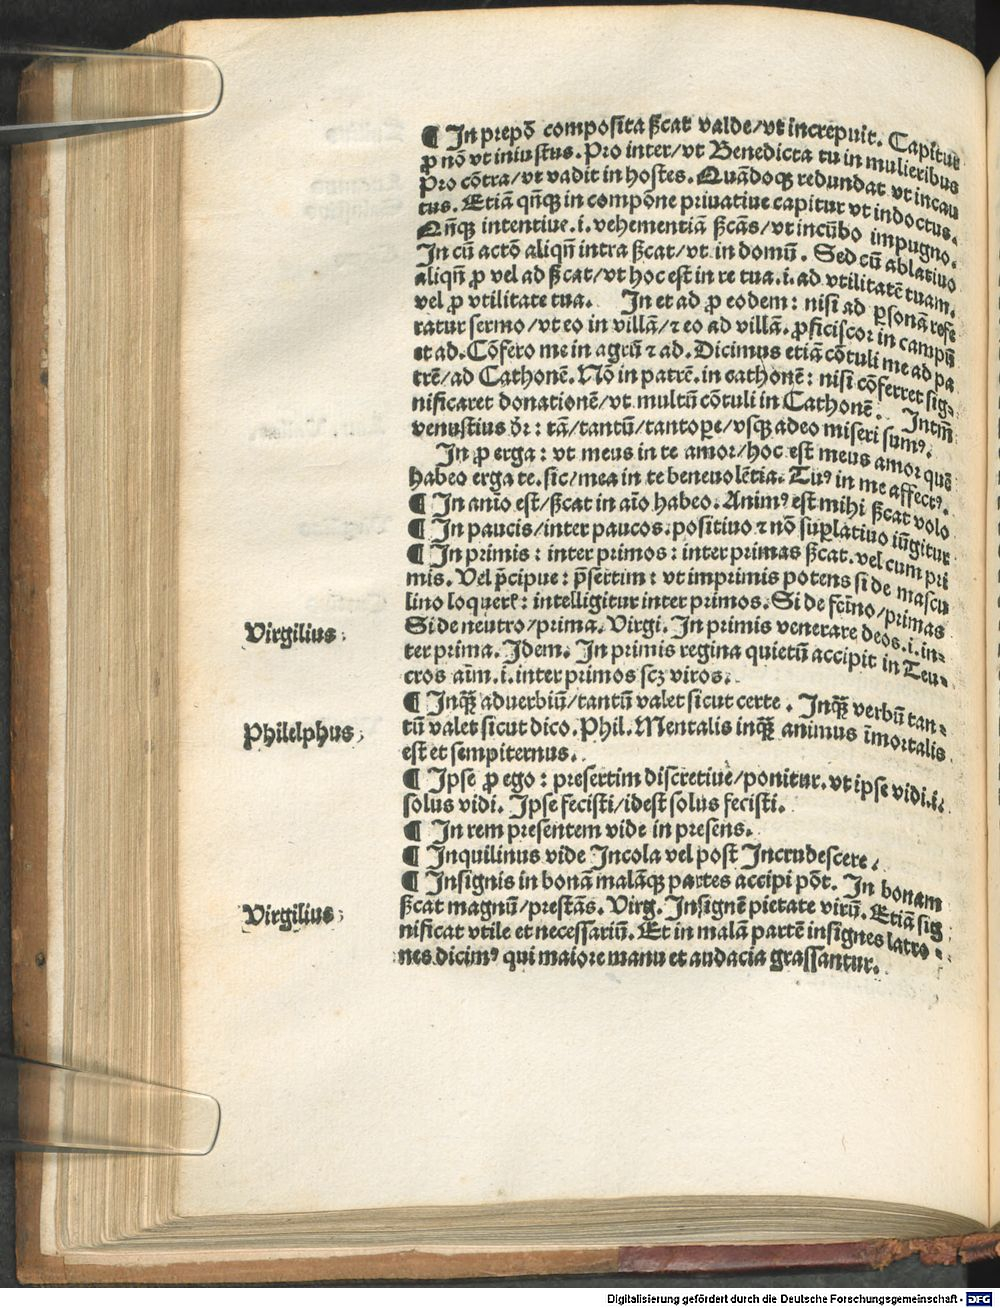 ¶ In prepō composita ſ̄cat valde/vt increpuit. Capitur
ꝓ nō vt iniustus. Pro inter/vt Benedicta tu in mulieribus
Pro cōtra/vt vadit in hostes. Quādoqꝫ redundat vt incau
tus. Etiā qn̄qꝫ in compōne priuatiue capitur vt indoctus.
Qn̄qꝫ intentiue.i. vehementiā ſ̄cās/vt incūbo impugno.
In cū actō aliqn̄ intra ſ̄cat/vt in domū. Sed cū ablatiuo
aliqn̄ ꝓ vel ad ſ̄cat/vt hoc est in re tua.i. ad vtilitatē tuam.
vel ꝓ vtilitate tua. In et ad ꝓ eodem: nisi ad ꝑsonā refe
ratur sermo/vt eo in villā/⁊ eo ad villā. ꝓficiscor in campū
et ad. Cōfero me in agrū ⁊ ad. Dicimus etiā cōtuli me ad pa
trē/ad Cathonē. Nō in patrē. in cathonē: nisi cōferret sig-
nificaret donationē/vt multū cōtuli in Cathonē. Intm̄
venustius dr̄: tā/tantū/tantoꝑe/vsqꝫ adeo miseri sumꝰ.
In ꝓ erga: vt meus in te amor/hoc est meus amor quē
habeo erga te. sic/mea in te beneuolētia. Tuꝰ in me affectꝰ.
¶ In anīo est/ſ̄cat in aīo habeo. Animꝰ est mihi ſ̄cat volo
¶ In paucis/inter paucos. positiuo ⁊ nō suꝑlatiuo iūgitur
¶ In primis: inter primos: inter primas ſ̄cat. vel cum pri
mis. Vel p̄cipue: p̄sertim: vt imprimis potens si de mascu
lino loquerꝭ: intelligitur inter primos. Si de femīo/primas
Si de neutro/prima. Virgi. In primis venerare deos.i. in-
ter prima. Idem. In primis regina quietū accipit in Teu-
cros aīm.i. inter primos scꝫ viros.
Virgilius;
¶ Inqͣꝫ aduerbiū/tantū valet sicut certe. Inqͣꝫ verbū tan-
tū valet sicut dico. Phil. Mentalis inqͣꝫ animus īmortalis
est et sempiternus.
Philelphus;
¶ Ipse ꝓ ego: presertim discretiue/ponitur. vt ipse vidi.i.
solus vidi. Ipse fecisti/idest solus fecisti.
¶ In rem presentem vide in presens.
¶ Inquilinus vide Incola vel post Incrudescere.
¶ Insignis in bonā malāqꝫ partes accipi pōt. In bonam
ſ̄cat magnū/prestās. Virg. Insignē pietate virū. Etiā sig
nificat vtile et necessariū. Et in malā partē insignes latro-
nes dicimꝰ qui maiore manu et audacia grassantur.
Virgilius;
Digitalisierung gefördert durch die Deutsche Forschungsgemeinschaft - DFG